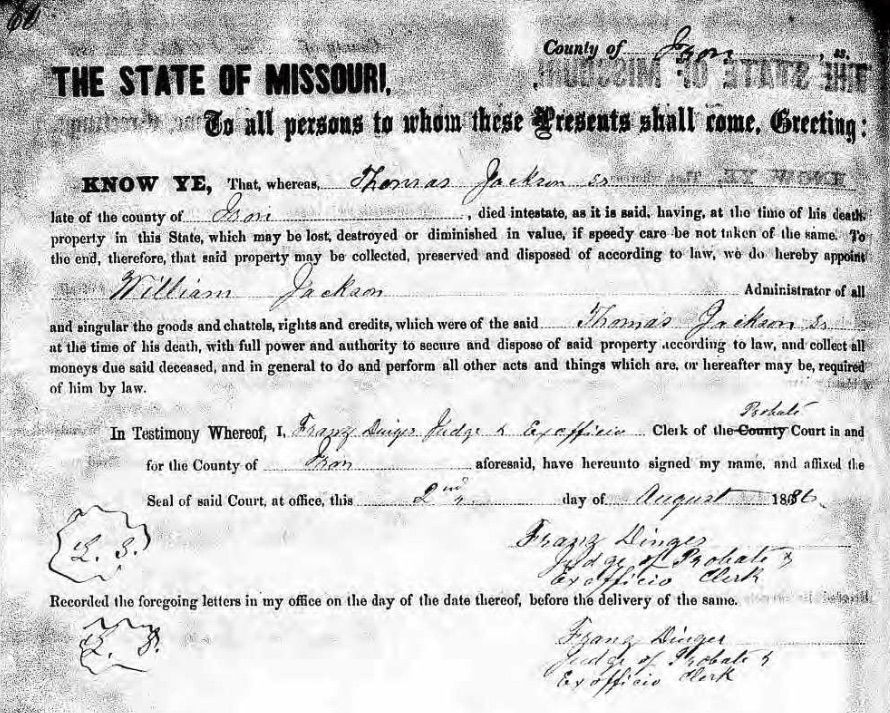 60
County of Iron, ss.
THE STATE OF MISSOURI,
To all persons to whom these Presents shall come, Greeting:
KNOW YE, That, whereas, Thomas Jackson Sr
late of the county of Iron, died intestate, as it is said, having, at the time of his death,
property in this State, which may be lost, destroyed or diminished in value, if speedy care be not taken of the same. To
the end, therefore, that said property may be collected, preserved and disposed of according to law, we do hereby appoint
William Jackson Administrator of all
and singular the goods and chattels, rights and credits, which were of the said Thomas Jackson Sr
at the time of his death, with full power and authority to secure and dispose of said property according to law, and collect all
moneys due said deceased, and in general to do and perform all other acts and things which are, or hereafter may be, required
of him by law.
Probate
In Testimony Whereof, I, Franz Dinger Judge & Exofficio Clerk of the County Court in and
for the County of Iron aforesaid, have hereunto signed my name, and affixed the
Seal of said Court, at office, this 2nd day of August 1886
L. S.
Franz Dinger
Judge of Probate &
Exofficio Clerk
Recorded the foregoing letters in my office on the day of the date thereof, before the delivery of the same.
L. S.
Franz Dinger
Judge of Probate &
Exofficio Clerk